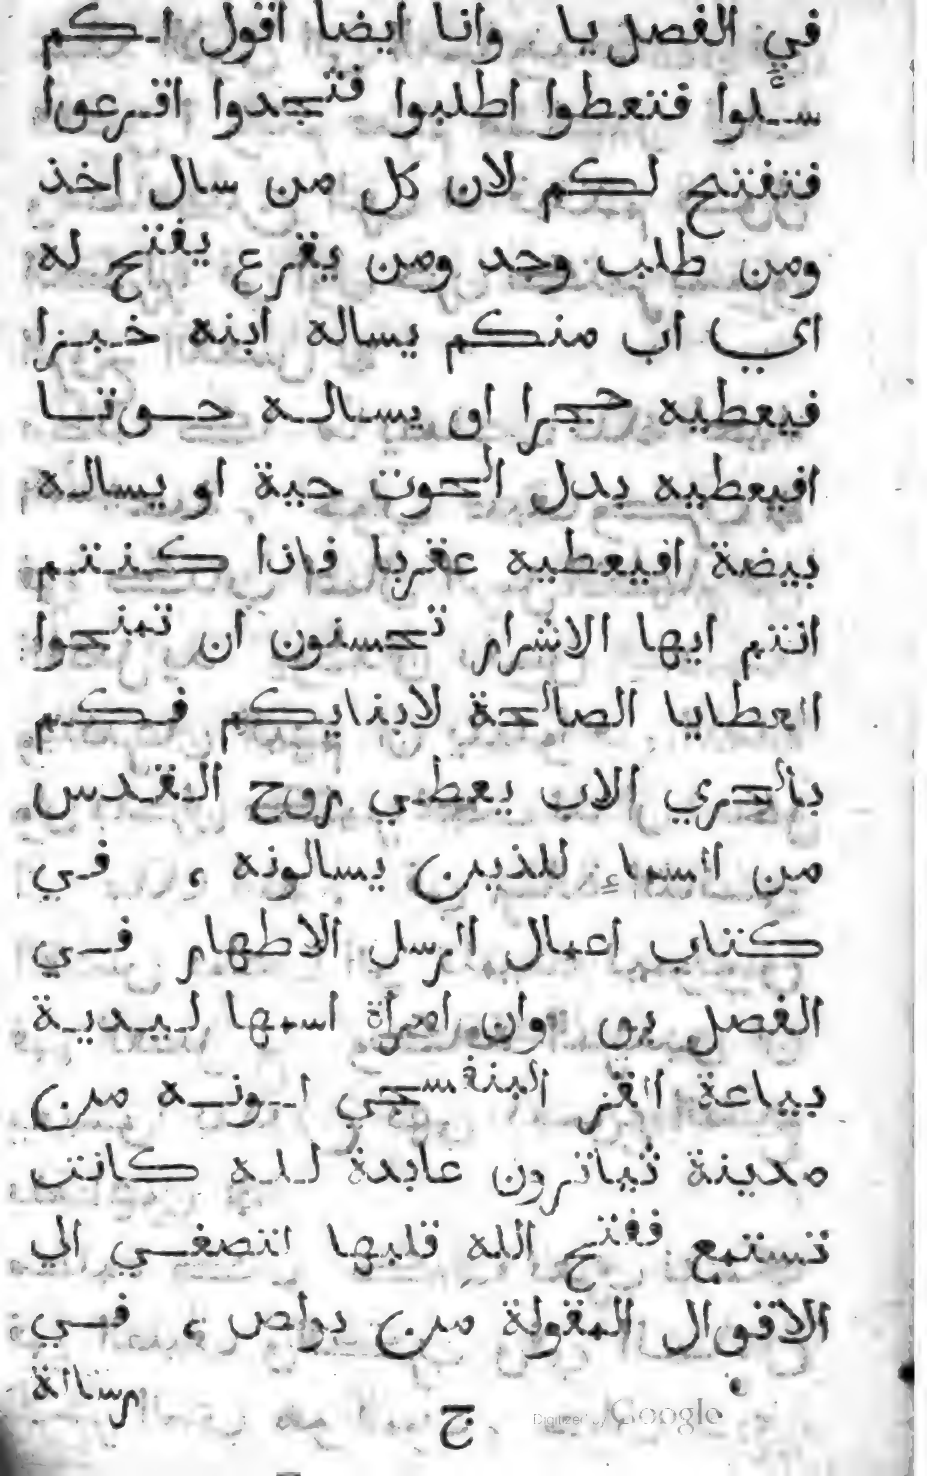 في الفصل يا وانا ايضا اقول لكم
سئلوا فتعطوا اطلبوا فتجدوا اقرعوا
فتفتح لكم لان كل من سال اخذ
ومن طلب وجد ومن يقرع يفتح له
اي اب منكم يساله ابنه خبزا
فيعطيه حجرا او يساله حوتا
افيعطيه بدل الحوت حية او يساله
بيضة افيعطيه عقربا فاذا كنتم
انتم ايها الاشرار تحسنون ان تمنحوا
العطايا الصالحة لابنايكم فكم
بالحري الاب يعطي روح القدس
من السماء للذين يسالونه ، في
كتاب اعمال الرسل الاطهار في
الفصل يو وان امراة اسمها ليدية
بياعة القز البنفسجي لونه من
مدينة ثياترون عابدة لله كانت
تستمع ففتح الله قلبها لتصغي الي
الاقوال المقولة من بولص ، في
رسالة
ج
Digitized by Google